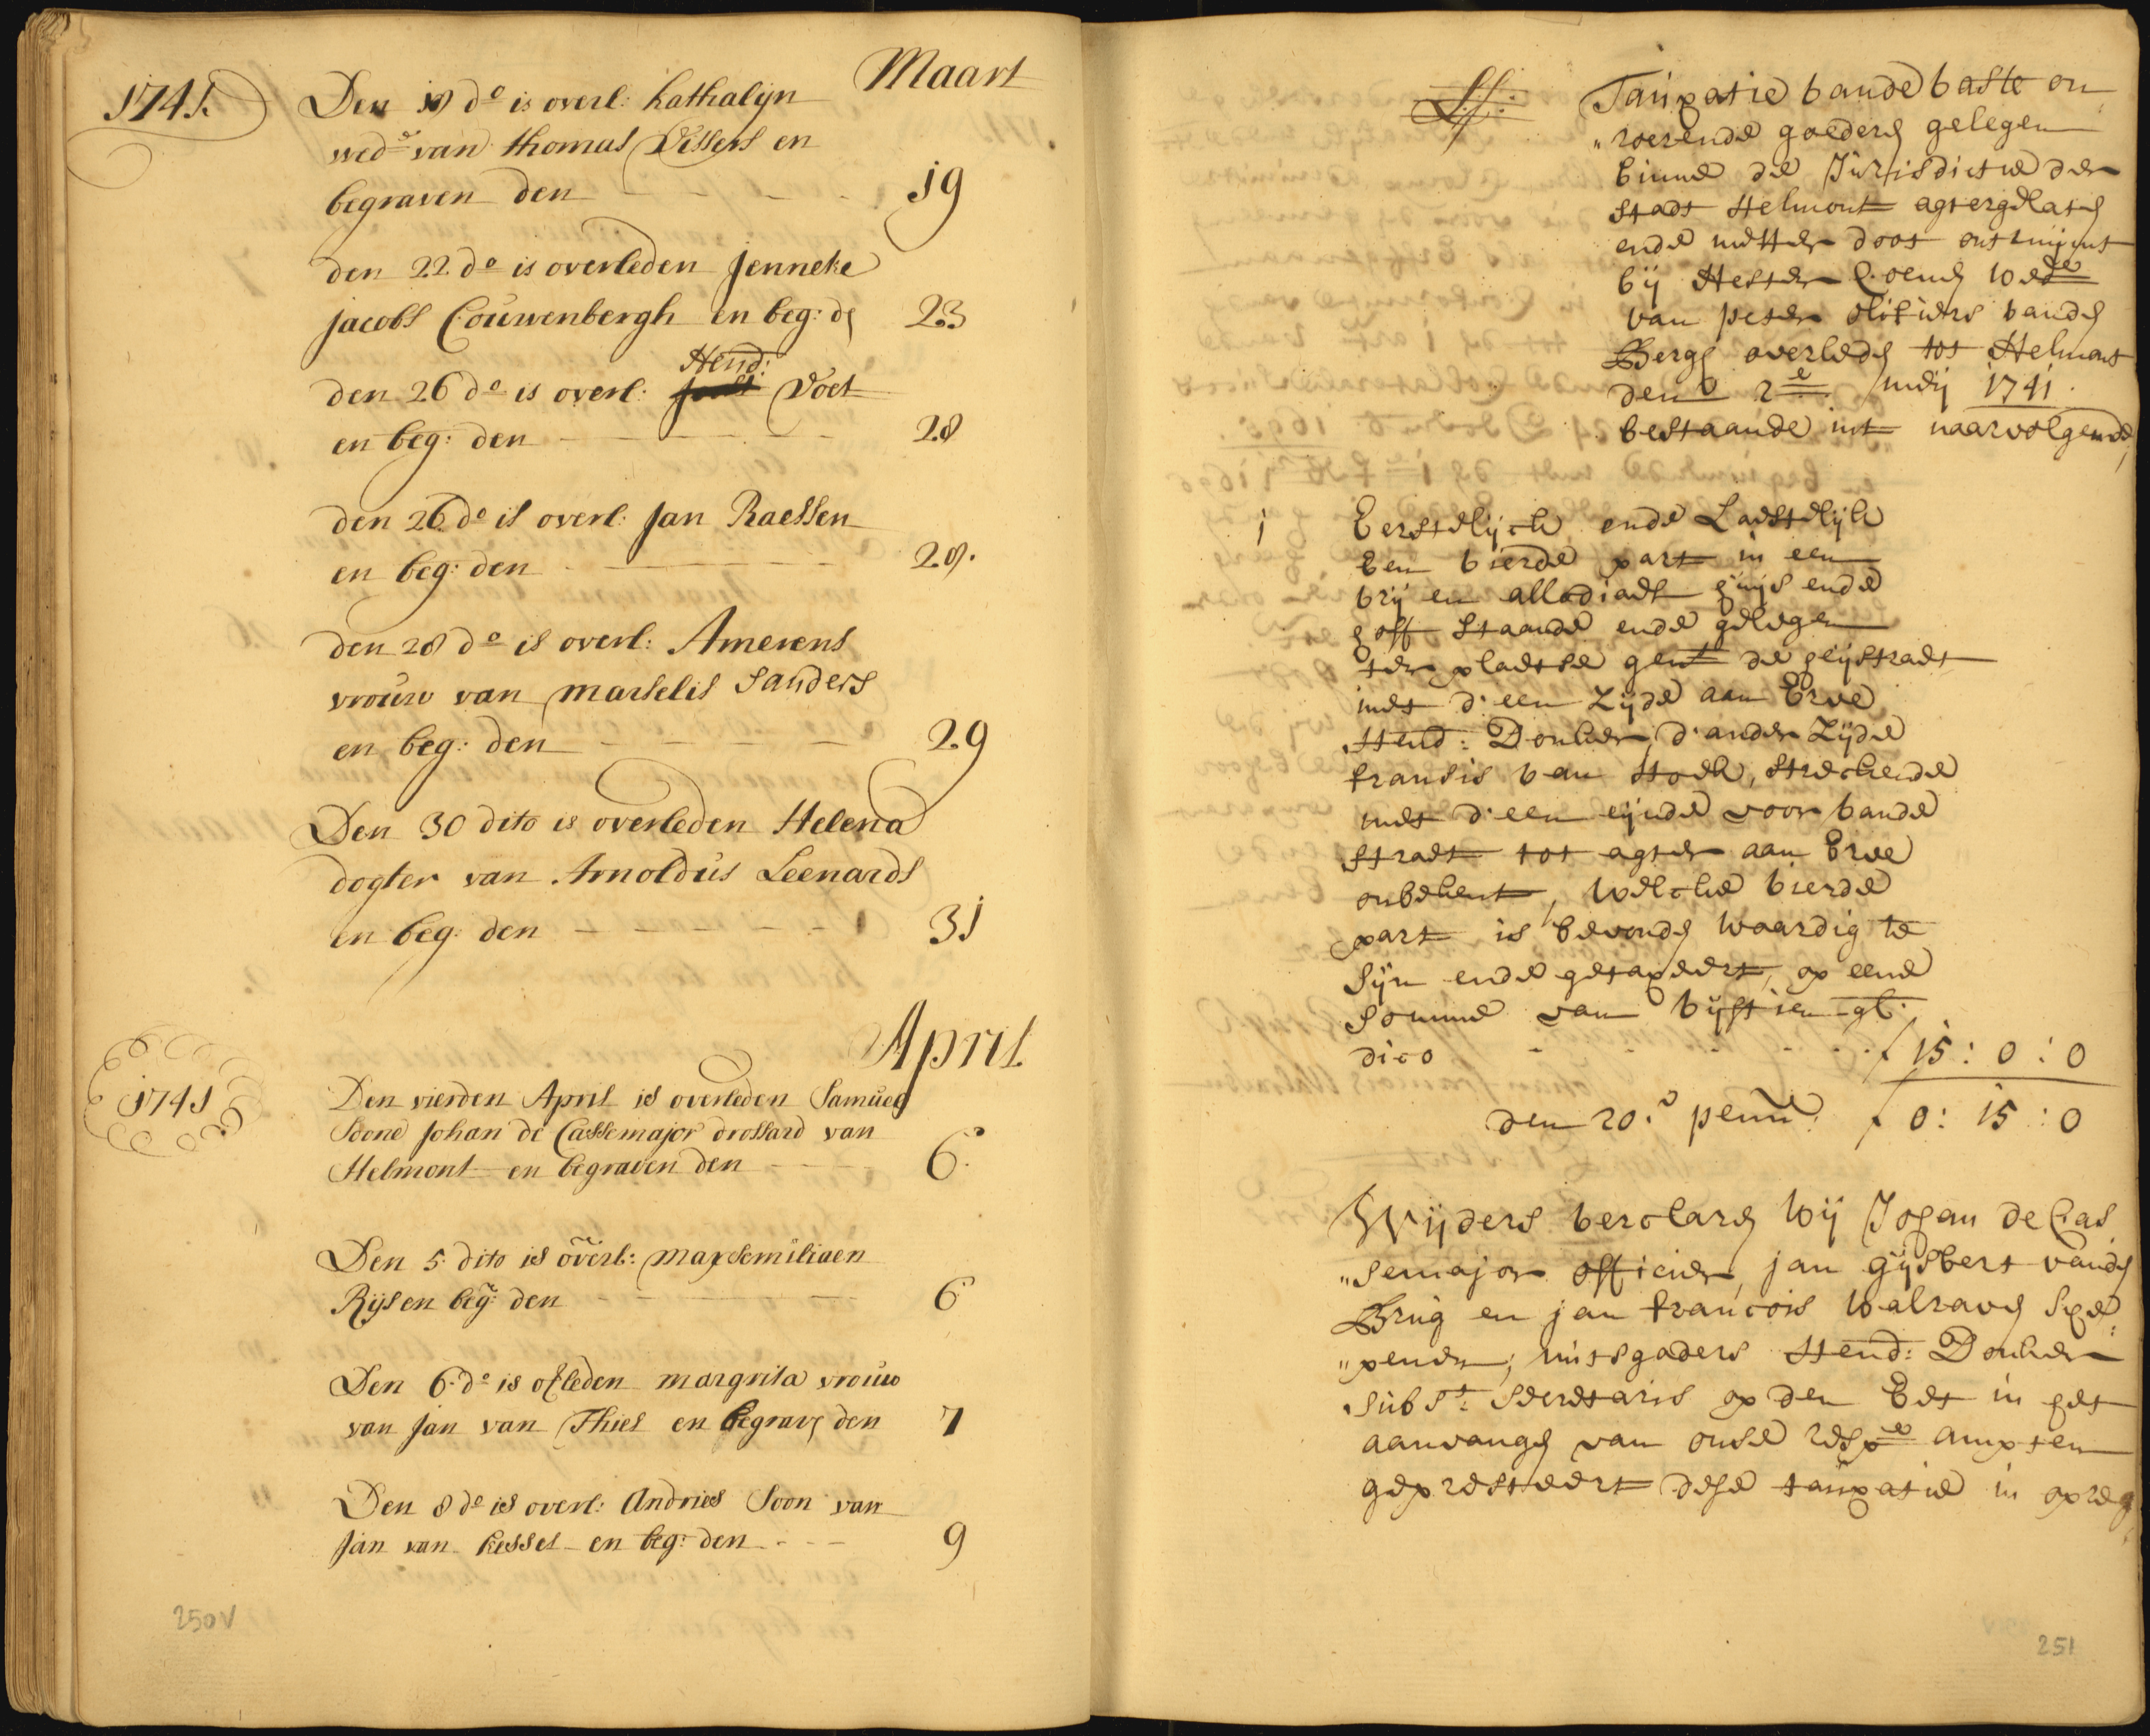 Maart
1741.
Den 18 do is overl: Kathalijn
wede van thomas Vissers en
begraven den - - - - 19
den 22 do is overleden Jenneke
Jacobs Couwenbergh en beg: de 23
Hend:
den 26 do is overl: Joost Voet
en beg: den - - - - 28
den 26 do is overl: Jan Raessen
en beg: den - - - - 28.
den 28 do is overl: Amerens
vrouw van marselis Sanders
en beg: den - - - - 29
Den 30 dito is overleden Helena
dogter van Arnoldus Leenards
en beg: den - - - - 31
April
1741
Den vierden April is overleden Samuel
Soone Johan de Cassemajor drossard van
Helmont en begraven den - - - 6.
Den 5 dito is overl: maxsemiliaen
Rijs en beg: den - - - - 6
Den 6 do is ofleden margrita vrouw
van Jan van Thiel en begrave den 7
Den 8 do is overl: Andries Soon van
Jan van Kessel en beg: den - - - 9
250V
Taüxatie vande vaste on
„roerende goedere gelegen
binne de Jurisdictie der
Stadt Helmont agtergelate
ende metter doot ontruijmt
bij Hester Coene wede
van peter olifiers vande
Berge overlede tot Helmont
den 2e meij 1741.
bestaande int naarvolgende,
1 Eerstelijck ende Laestelijk
Een vierde part in een
vrij en allodiaelt huijs ende
hoff staande ende gelegen
ter plaetse gent de heijstraet
met d'een Zijde aan Erve
Hend: Donker, d'ander Zijde
fransis van Hoek, streckende
met d'een eijnde voor vande
straet tot agter aan Erve
onbekent, welcke vierde
part is bevonde waardig te
sijn ende getaxeert, op eene
somme van vijftien gl.
dico - - - - f 15 : 0 : 0
den 20.e penn: f 0 : 15 : 0
Wijders verclare wij Johan de Cas
„semajor officier, jan gijsbert vande
Brug en jan francois walrave Sche
„penen, mitsgaders Hend: Donker
subst: Secretaris op den Eet in het
aanvange van onse respe ampten
gepresteert dese taüxatie in opreg
251